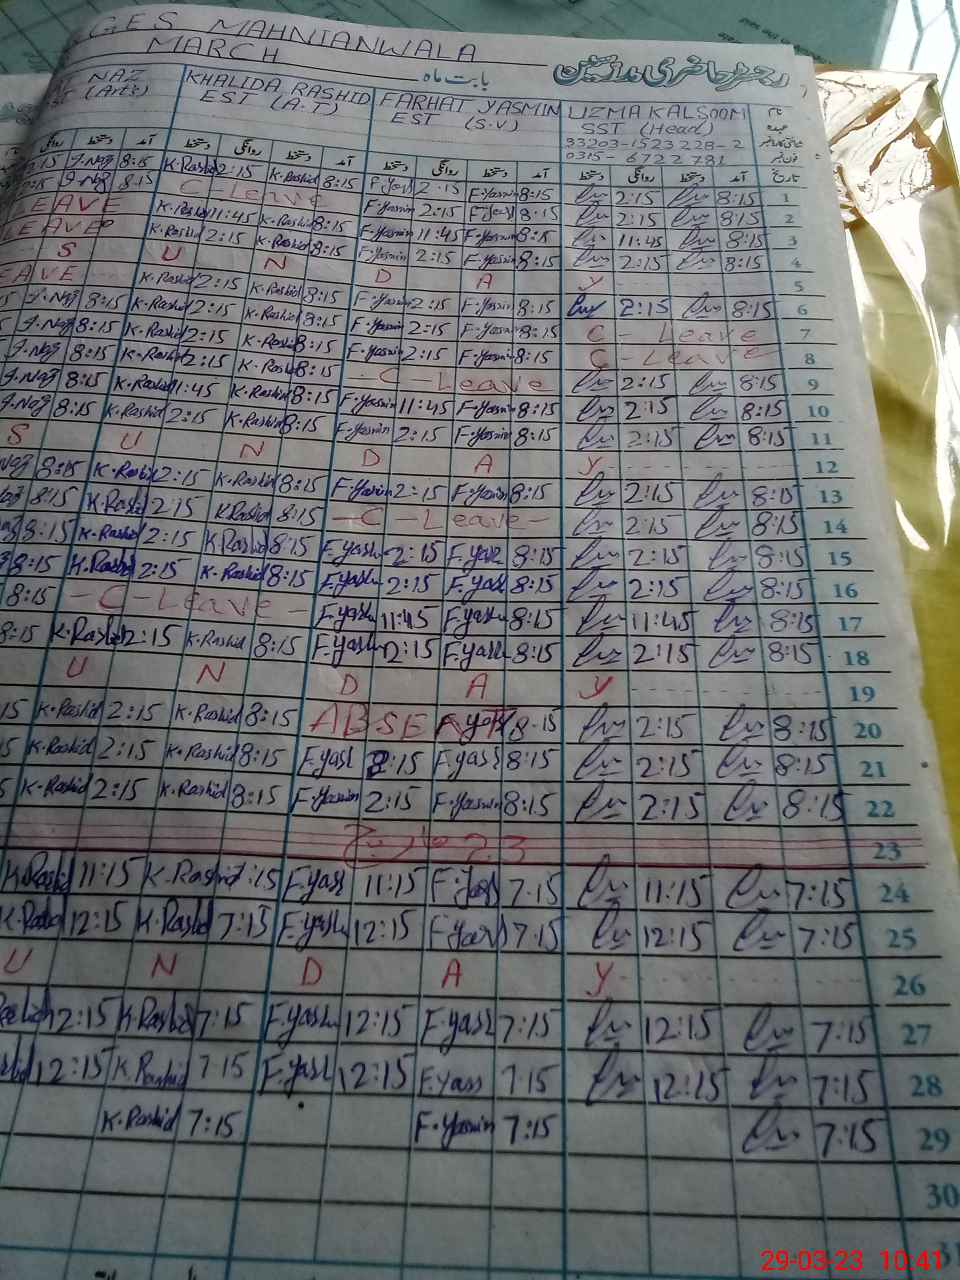 GES MAHNIANWALA
MARCH بابت ماہ رجسٹر حاضری مدرسین
NAZ KHALIDA RASHID FARHAT YASMIN UZMA KALSOOM نام
(Arts) EST (A.T) EST (S.V) SST (Head) عہدہ
33203-1523228-2
0315-6722781
دستخط آمد دستخط روانگی دستخط آمد دستخط روانگی دستخط آمد دستخط روانگی دستخط آمد تاریخ
2:15 J.Naz 8:15 K.Rashid 2:15 K.Rashid 8:15 F.Yas 2:15 F.Yasmin 8:15 2:15 8:15 1
J.Naz 8:15 C-Leave F.Yasmin 2:15 F.Yas 8:15 2:15 8:15 2
LEAVE K.Rashid 11:45 K.Rashid 8:15 F.Yasmin 11:45 F.Yasmin 8:15 11:45 8:15 3
LEAVE K.Rashid 2:15 K.Rashid 8:15 F.Yasmin 2:15 F.Yasmin 8:15 2:15 8:15 4
S U N D A Y 5
EAVE K.Rashid 2:15 K.Rashid 8:15 F.Yasmin 2:15 F.Yasmin 8:15 2:15 8:15 6
J.Naz 8:15 K.Rashid 2:15 K.Rashid 8:15 F.Yasmin 2:15 F.Yasmin 8:15 C-Leave 7
J.Naz 8:15 K.Rashid 2:15 K.Rashid 8:15 F.Yasmin 2:15 F.Yasmin 8:15 C-Leave 8
J.Naz 8:15 K.Rashid 2:15 K.Rashid 8:15 -C-Leave 2:15 8:15 9
J.Naz 8:15 K.Rashid 11:45 K.Rashid 8:15 F.Yasmin 11:45 F.Yasmin 8:15 2:15 8:15 10
J.Naz 8:15 K.Rashid 2:15 K.Rashid 8:15 F.Yasmin 2:15 F.Yasmin 8:15 2:15 8:15 11
S U N D A Y 12
Naz 8:15 K.Rashid 2:15 K.Rashid 8:15 F.Yasmin 2:15 F.Yasmin 8:15 2:15 8:15 13
8:15 K.Rashid 2:15 K.Rashid 8:15 -C-Leave- 2:15 8:15 14
8:15 K.Rashid 2:15 K.Rashid 8:15 F.Yas 2:15 F.Yas 8:15 2:15 8:15 15
8:15 K.Rashid 2:15 K.Rashid 8:15 F.Yas 2:15 F.Yas 8:15 2:15 8:15 16
8:15 -C-Leave- F.Yas 11:45 F.Yas 8:15 11:45 8:15 17
8:15 K.Rashid 2:15 K.Rashid 8:15 F.Yas 2:15 F.Yas 8:15 2:15 8:15 18
U N D A Y 19
15 K.Rashid 2:15 K.Rashid 8:15 ABSENT F.Yas 8:15 2:15 8:15 20
K.Rashid 2:15 K.Rashid 8:15 F.Yas 2:15 F.Yas 8:15 2:15 8:15 21
K.Rashid 2:15 K.Rashid 8:15 F.Yasmin 2:15 F.Yasmin 8:15 2:15 8:15 22
23 مارچ 23
K.Rashid 11:15 K.Rashid 7:15 F.Yas 11:15 F.Yas 7:15 11:15 7:15 24
K.Rashid 12:15 K.Rashid 7:15 F.Yas 12:15 F.Yas 7:15 12:15 7:15 25
U N D A Y 26
Rashid 12:15 K.Rashid 7:15 F.Yas 12:15 F.Yas 7:15 12:15 7:15 27
12:15 K.Rashid 7:15 F.Yas 12:15 F.Yas 7:15 12:15 7:15 28
K.Rashid 7:15 F.Yasmin 7:15 7:15 29
30
31
29-03-23 10:41